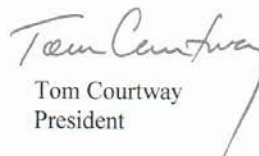 Tom Courtway
Tom Courtway
President